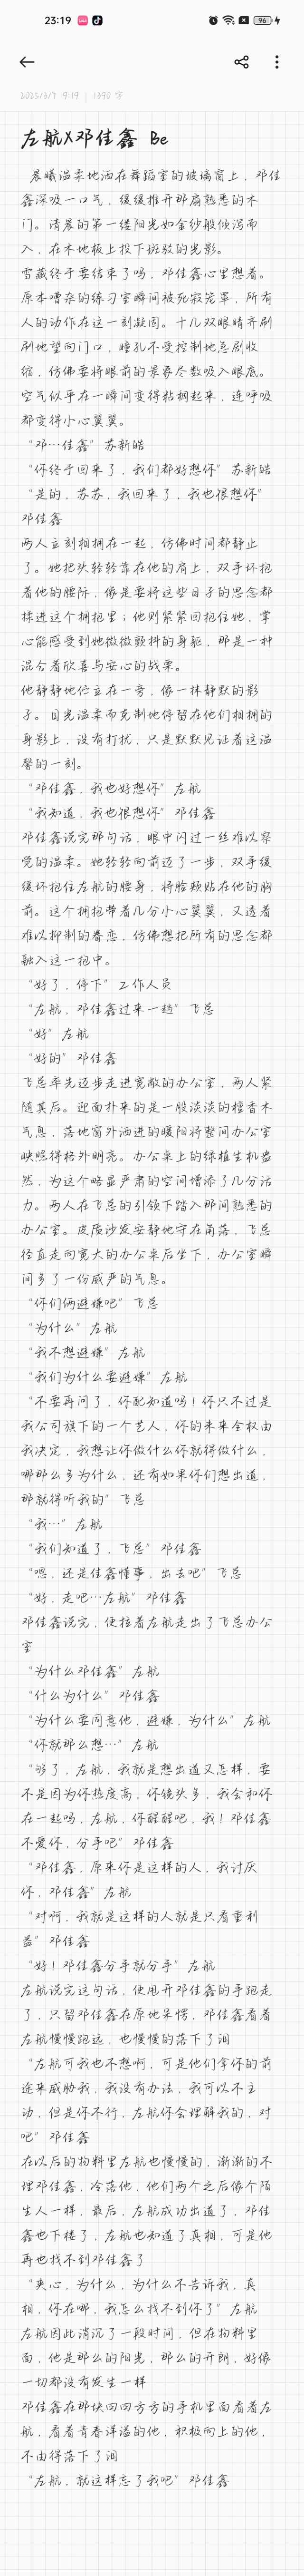 23:19
96
2025/3/7 19:19 | 1390 字
左航X邓佳鑫 Be
晨曦温柔地洒在舞蹈室的玻璃窗上，邓佳
鑫深吸一口气，缓缓推开那扇熟悉的木
门。清晨的第一缕阳光如金纱般倾泻而
入，在木地板上投下斑驳的光影。
雪藏终于要结束了吗，邓佳鑫心里想着。
原本嘈杂的练习室瞬间被死寂笼罩，所有
人的动作在这一刻凝固。十几双眼睛齐刷
刷地望向门口，瞳孔不受控制地急剧收
缩，仿佛要将眼前的景象尽数吸入眼底。
空气似乎在一瞬间变得粘稠起来，连呼吸
都变得小心翼翼。
“邓…佳鑫”苏新皓
“你终于回来了，我们都好想你”苏新皓
“是的，苏苏，我回来了，我也很想你”
邓佳鑫
两人立刻相拥在一起，仿佛时间都静止
了。她把头轻轻靠在他的肩上，双手环抱
着他的腰际，像是要将这些日子的思念都
揉进这个拥抱里；他则紧紧回抱住她，掌
心能感受到她微微颤抖的身躯，那是一种
混合着欣喜与安心的战栗。
他静静地伫立在一旁，像一抹静默的影
子。目光温柔而克制地停留在他们相拥的
身影上，没有打扰，只是默默见证着这温
馨的一刻。
“邓佳鑫，我也好想你”左航
“我知道，我也很想你”邓佳鑫
邓佳鑫说完那句话，眼中闪过一丝难以察
觉的温柔。她轻轻向前迈了一步，双手缓
缓环抱住左航的腰身，将脸颊贴在他的胸
前。这个拥抱带着几分小心翼翼，又透着
难以抑制的眷恋，仿佛想把所有的思念都
融入这一抱中。
“好了，停下”工作人员
“左航，邓佳鑫过来一趟”飞总
“好”左航
“好的”邓佳鑫
飞总率先迈步走进宽敞的办公室，两人紧
随其后。迎面扑来的是一股淡淡的檀香木
气息，落地窗外洒进的暖阳将整间办公室
映照得格外明亮。办公桌上的绿植生机盎
然，为这个略显严肃的空间增添了几分活
力。两人在飞总的引领下踏入那间熟悉的
办公室。皮质沙发安静地守在角落，飞总
径直走向宽大的办公桌后坐下，办公室瞬
间多了一份威严的气息。
“你们俩避嫌吧”飞总
“为什么”左航
“我不想避嫌”左航
“我们为什么要避嫌”左航
“不要再问了，你配知道吗！你只不过是
我公司旗下的一个艺人，你的未来全权由
我决定，我想让你做什么你就得做什么，
哪那么多为什么，还有如果你们想出道，
那就得听我的”飞总
“我…”左航
“我们知道了，飞总”邓佳鑫
“嗯，还是佳鑫懂事，出去吧”飞总
“好，走吧…左航”邓佳鑫
邓佳鑫说完，便拉着左航走出了飞总办公
室
“为什么邓佳鑫”左航
“什么为什么”邓佳鑫
“为什么要同意他，避嫌，为什么”左航
“你就那么想…”左航
“够了，左航，我就是想出道又怎样，要
不是因为你热度高，你镜头多，我会和你
在一起吗，左航，你醒醒吧，我！邓佳鑫
不爱你，分手吧”邓佳鑫
“邓佳鑫，原来你是这样的人，我讨厌
你，邓佳鑫”左航
“对啊，我就是这样的人就是只看重利
益”邓佳鑫
“好！邓佳鑫分手就分手”左航
左航说完这句话，便甩开邓佳鑫的手跑走
了，只留邓佳鑫在原地呆愣，邓佳鑫看着
左航慢慢跑远，也慢慢的落下了泪
“左航可我也不想啊，可是他们拿你的前
途来威胁我，我没有办法，我可以不主
动，但是你不行，左航你会理解我的，对
吧”邓佳鑫
在以后的物料里左航也慢慢的，渐渐的不
理邓佳鑫，冷落他，他们两个之后像个陌
生人一样，最后，左航成功出道了，邓佳
鑫也下楼了，左航也知道了真相，可是他
再也找不到邓佳鑫了
“夹心，为什么，为什么不告诉我，真
相，你在哪，我怎么找不到你了”左航
左航因此消沉了一段时间，但在物料里
面，他是那么的阳光，那么的开朗，好像
一切都没有发生一样
邓佳鑫在那块四四方方的手机里面看着左
航，看着青春洋溢的他，积极向上的他，
不由得落下了泪
“左航，就这样忘了我吧”邓佳鑫